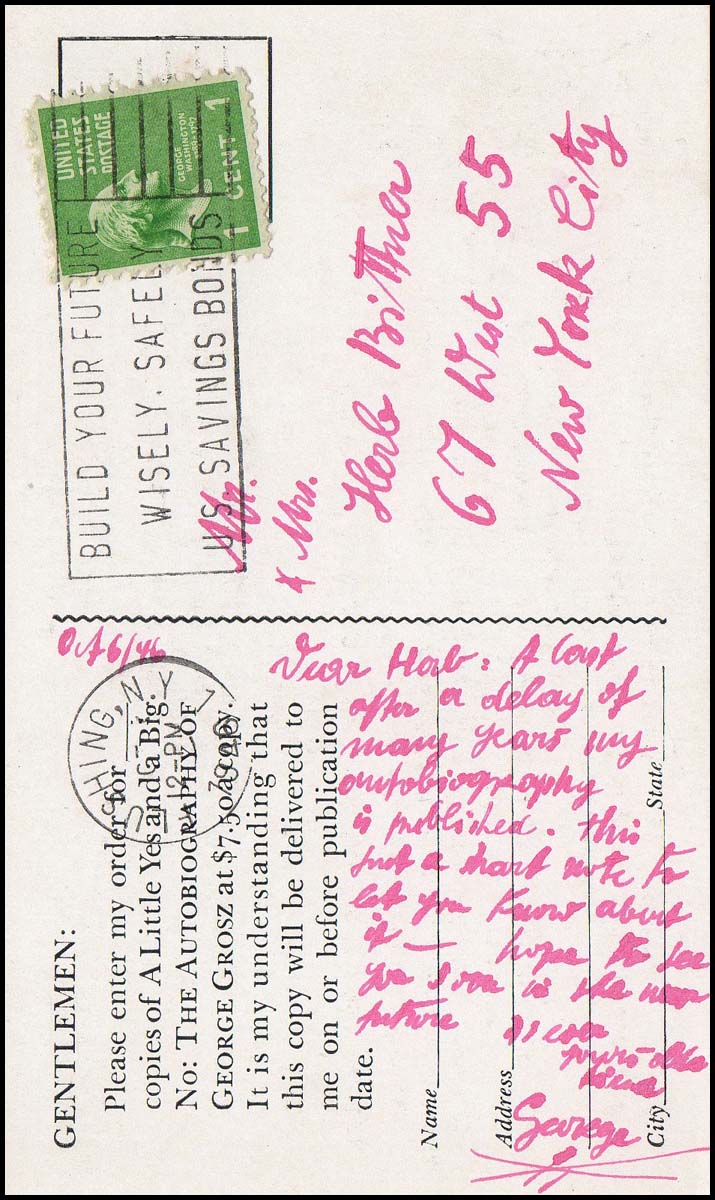 UNITED
STATES
POSTAGE
GEORGE
WASHINGTON
1789-1797
1 CENT 1
BUILD YOUR FUTURE
WISELY. SAFELY
U.S. SAVINGS BONDS
Mr.
& Mrs.
Herb Bittner
67 West 55
New York City
Oct 6/46
SHING, N.Y.
12-PM
1946
GENTLEMEN:
Please enter my order for
copies of A Little Yes and a Big
No: THE AUTOBIOGRAPHY OF
GEORGE GROSZ at $7.50 a copy.
It is my understanding that
this copy will be delivered to
me on or before publication
date.
Name
Address
City State
Dear Herb: A last
after a delay of
many years my
autobiography
is published. this
just a short note to
let you know about
it — hope to see
you soon in the near
future
as ever
yours
George